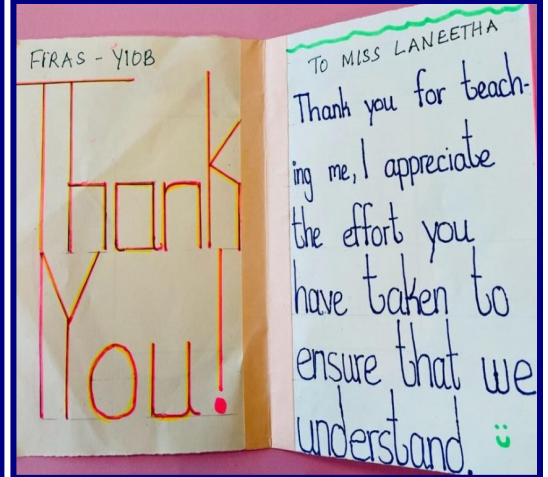 FIRAS - Y10B
Thank
You!
TO MISS LANEETHA
Thank you for teach-
ing me, I appreciate
the effort you
have taken to
ensure that we
understand.